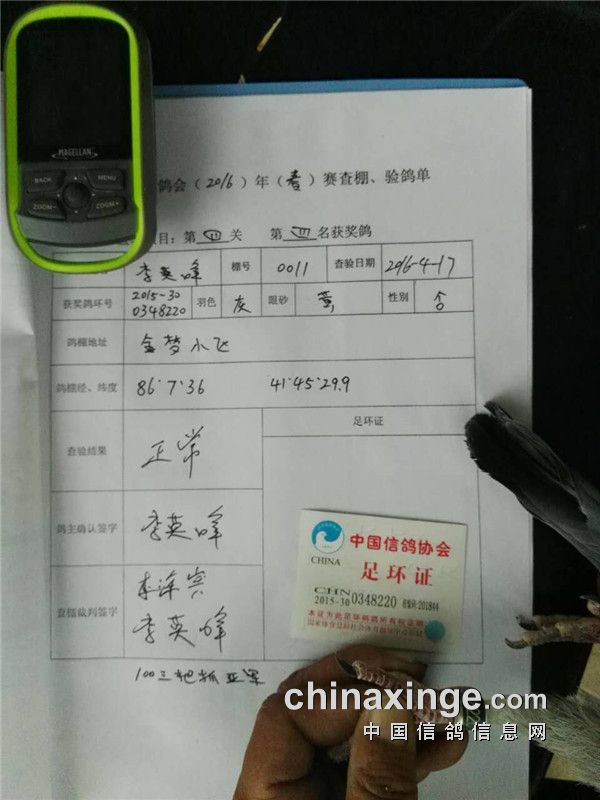 MAGELLAN
BACK
MENU
ZOOM-
ZOOM+
鸽会(2016)年(春)赛查棚、验鸽单
项目:第 四 关 第 四 名获奖鸽
李英峰 棚号 0011 查验日期 2016-4-17
获奖鸽环号 2015-30 0348220 羽色 灰 眼砂 黄 性别
鸽棚地址 金梦小飞
鸽棚经、纬度 86°7'36 41°45'29.9
足环证
查验结果 正常
鸽主确认签字 李英峰
查棚裁判签字
李英峰
中国信鸽协会
CHINA
足环证
CHN
2015-30 0348220
201844
本证为此足环鸽所有权证明
chinaxinge.com
中国信鸽信息网